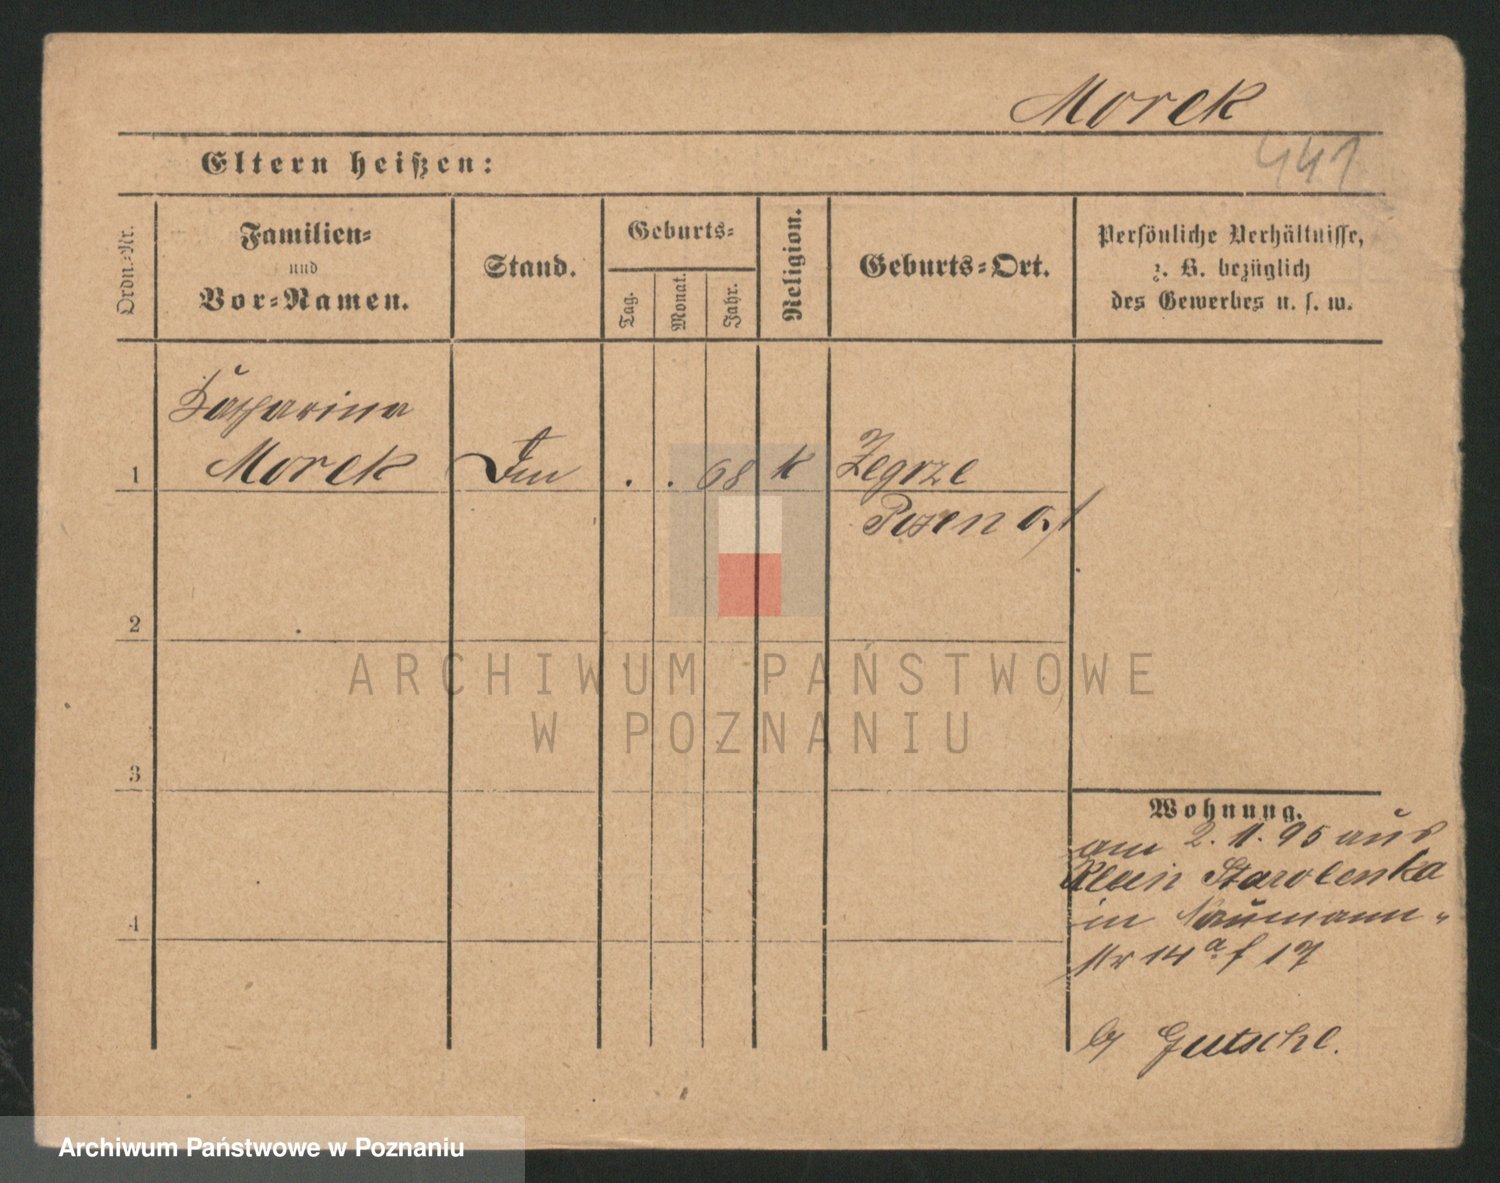 Morek
441
Eltern heißen:
Ordn.-Nr.
Familien-
und
Vor-Namen.
Stand.
Geburts-
Tag.
Monat.
Jahr.
Religion.
Geburts-Ort.
Persönliche Verhältnisse,
z. B. bezüglich
des Gewerbes u. s. w.
Katharina
1 Morek . . 68 k Zegrze
Posen O.
2
ARCHIWUM PAŃSTWOWE
W POZNANIU
3
Wohnung.
am 2. 1. 95 aus
Klein Starolenka
in Naumann-
str 14 a 17
4
b/ Gutsche.
Archiwum Państwowe w Poznaniu